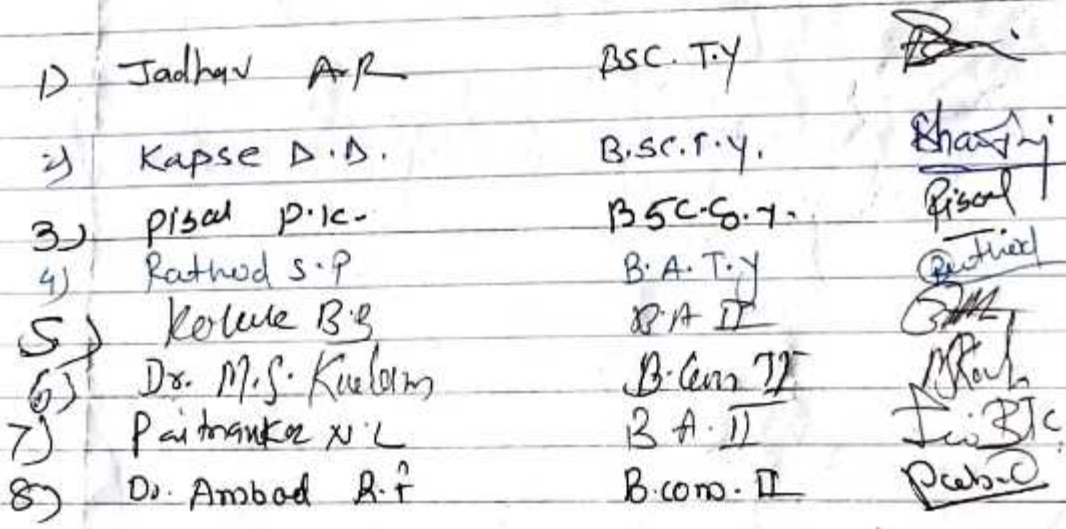 1) Jadhav A.R BSC. T.Y
2) Kapse D.D. B.SC.T.Y.
3) Pisal P.K. BSC.S.Y. Pisal
4) Rathod S.P B.A.T.y Rathod
5) B.A II
6) Dr. M.S. B.Com II
7) Paitnankar N.L B A.II
8) Dr. Ambad R.T B.com. II